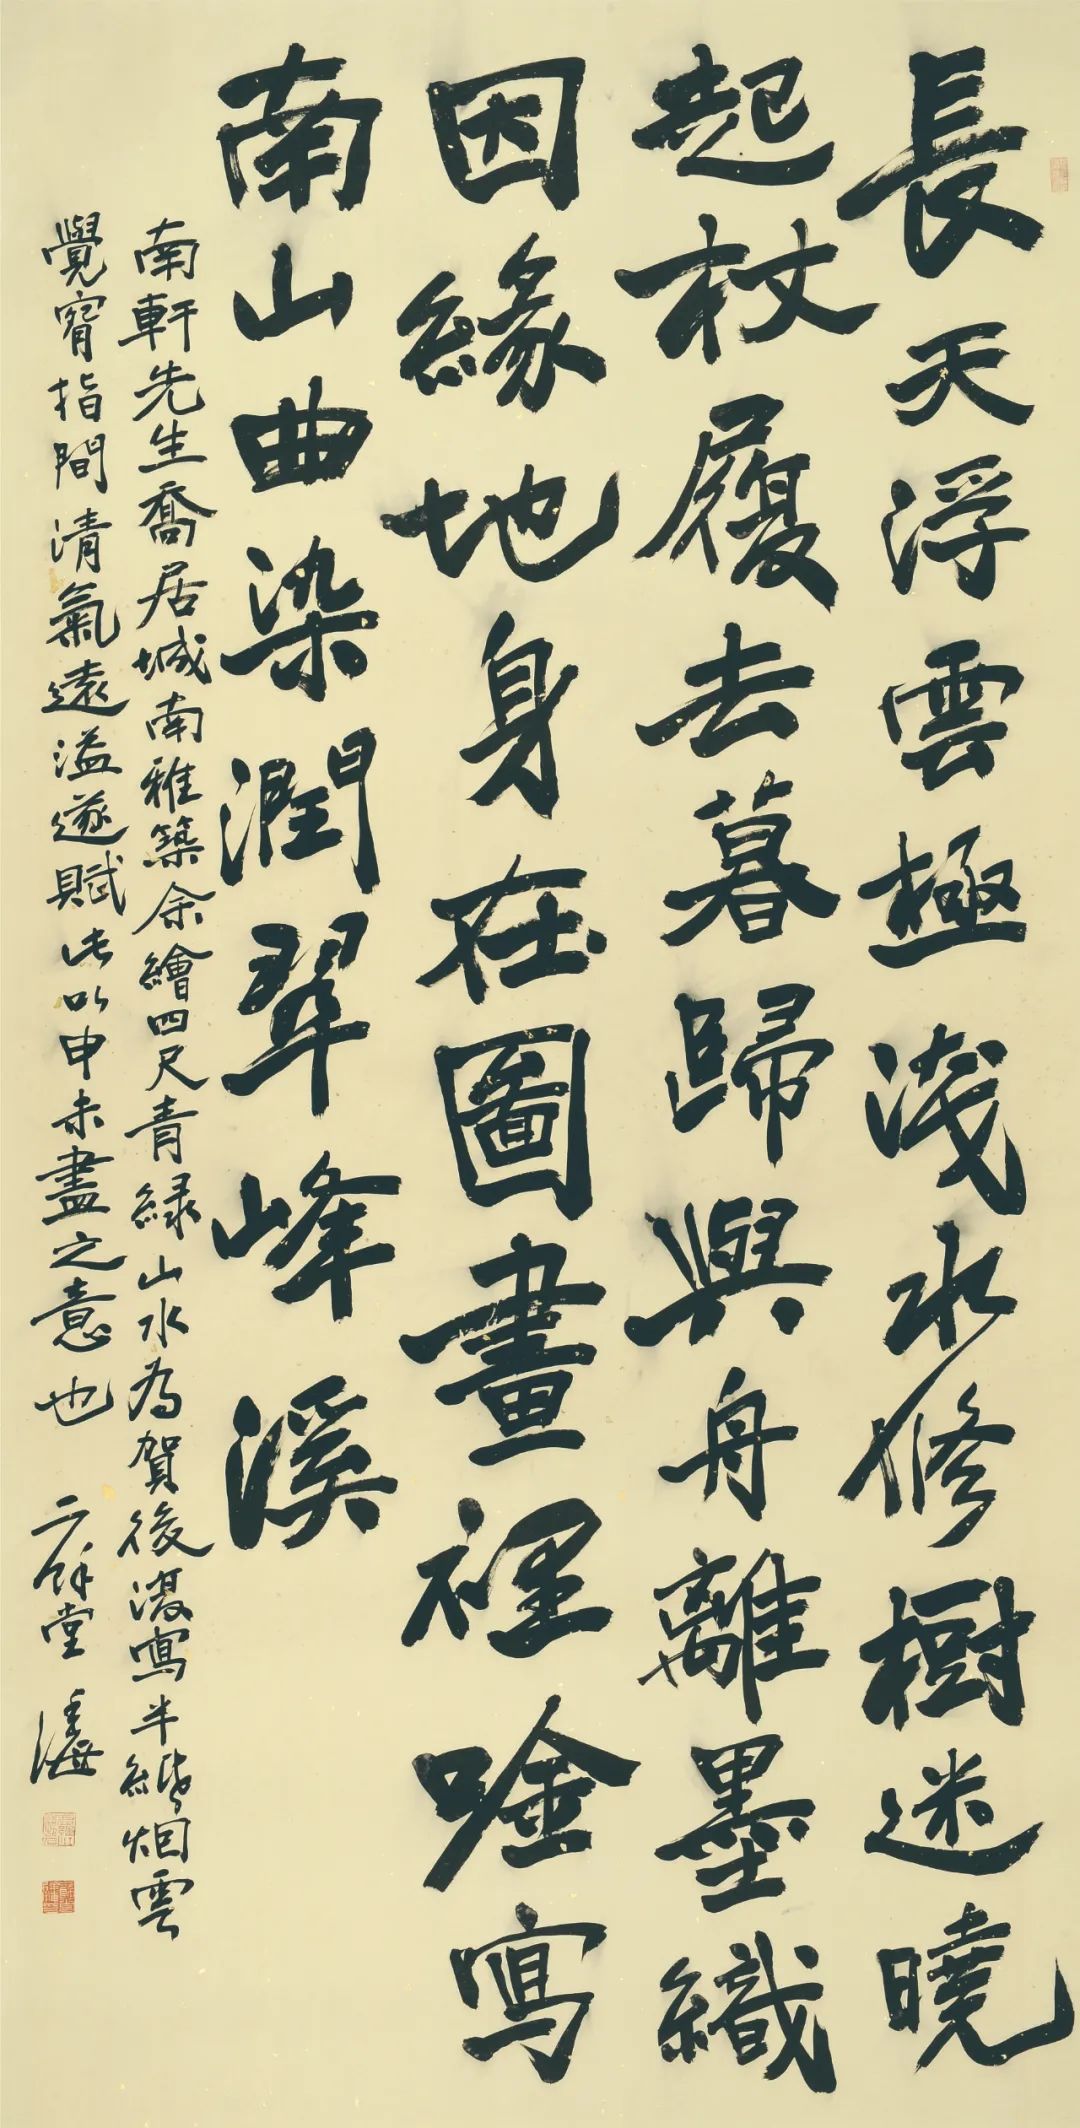 長天浮雲極淺水修樹迷曉
起杖履去暮歸與舟離墨織
因緣地身在圖畫裡唫寫
南山曲染潤翠峰溪
南軒先生喬居城南雅築余繪四尺青綠山水為賀後復寫半紙烟雲
覺窗指間清氣遠溢遂賦此以申未盡之意也 二餘堂